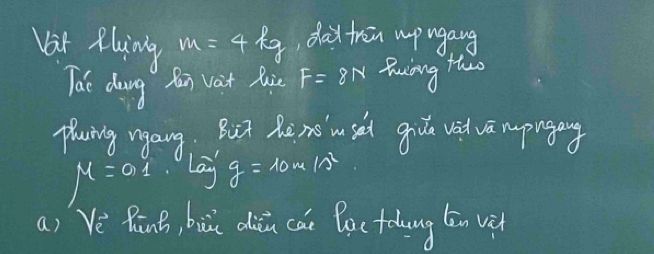 Vật khối lượng m = 4 kg, đặt trên mp ngang
Tác dụng lên vật lực F = 8N hướng theo
phương ngang. Biết hệ số m sát giữa vật và mp ngang
μ = 0,1. Lấy g = 10 m/s²
a) Vẽ hình, biểu diễn các lực t dụng lên vật